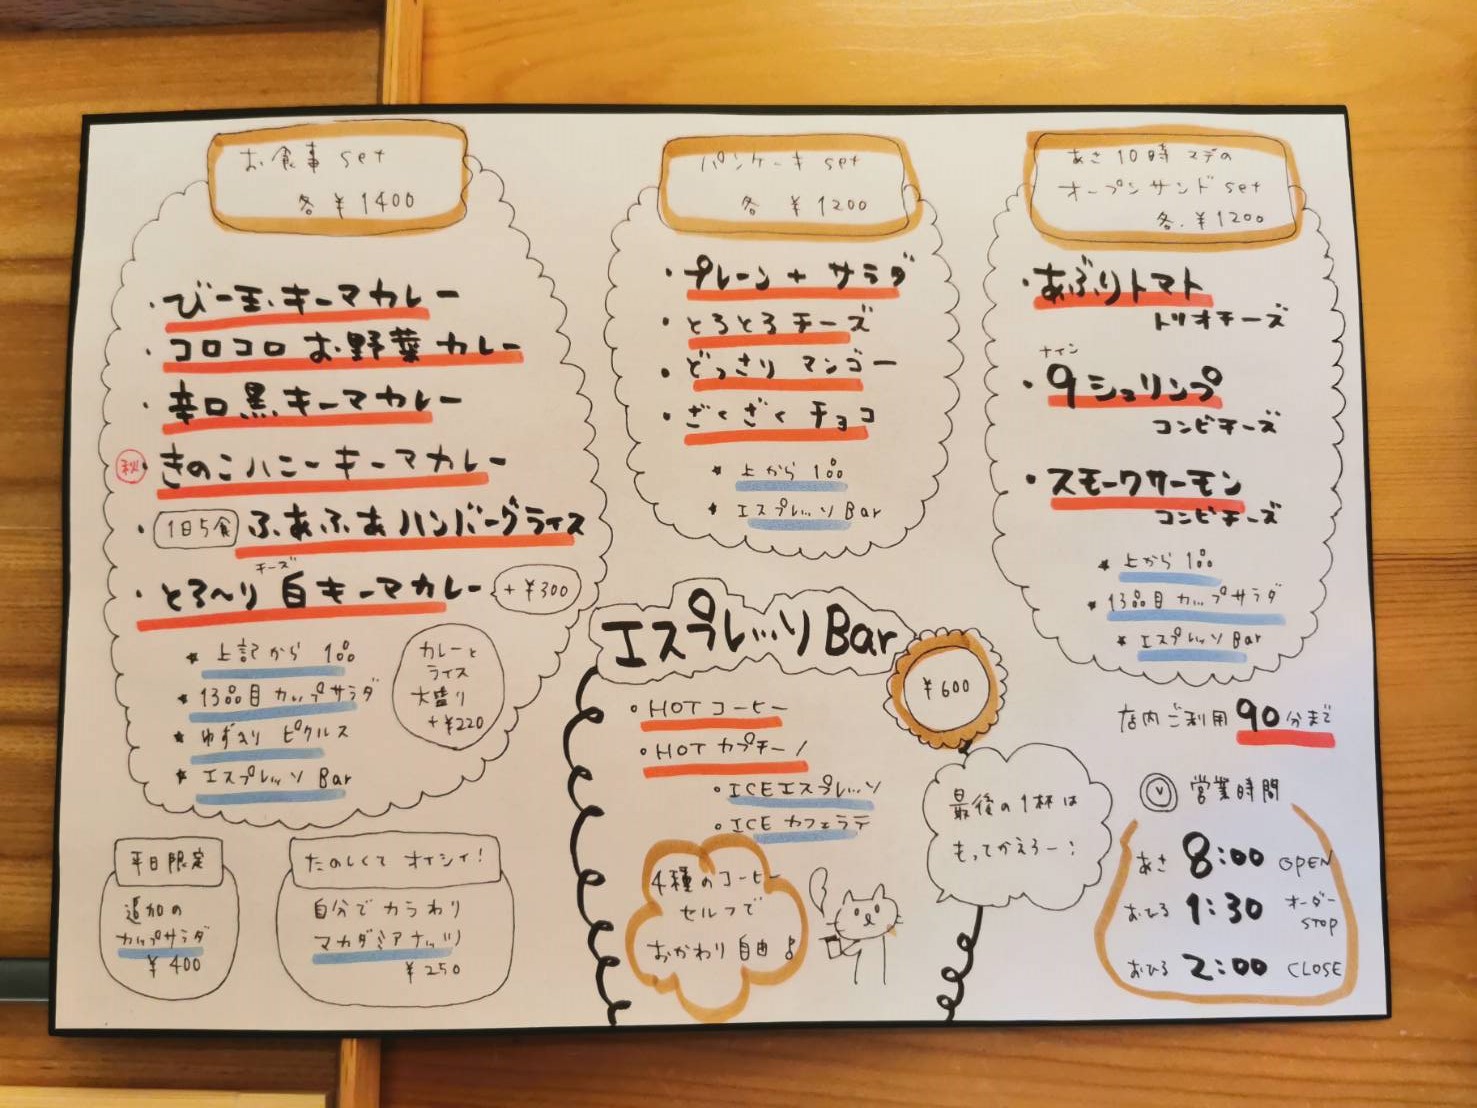 お食事 set
各 ¥1400
・び一玉キーマカレー
・コロコロお野菜カレー
・辛口黒キーマカレー
秋・きのこハニーキーマカレー
・1日5食 ふあふあハンバーグライス
チーズ
・とろ〜り白キーマカレー +¥300
★上記から1品
★13品目カップサラダ
★ゆずきりピクルス
★エスプレッソ Bar
カレーと
ライス
大盛り
+¥220
平日限定
追加の
カップサラダ
¥400
たのしくてオイシイ!
自分でカラわり
マカダミアナッツ
¥250
パンケーキ set
各 ¥1200
・プレーン+サラダ
・とろとろチーズ
・どっさりマンゴー
・ざくざくチョコ
★上から1品
★エスプレッソ Bar
エスプレッソ Bar
¥600
・HOT コーヒー
・HOT カプチーノ
・ICEエスプレッソ
・ICE カフェラテ
4種のコーヒー
セルフで
おかわり自由♪
最後の1杯は
もってかえろー!
あさ10時マデの
オープンサンド set
各 ¥1200
・あぶりトマト
トリオチーズ
ナイン
・9シュリンプ
コンビチーズ
・スモークサーモン
コンビチーズ
★上から1品
★13品目カップサラダ
★エスプレッソ Bar
店内ご利用90分まで
営業時間
あさ 8:00 OPEN
おひる 1:30 オーダー
STOP
おひる 2:00 CLOSE